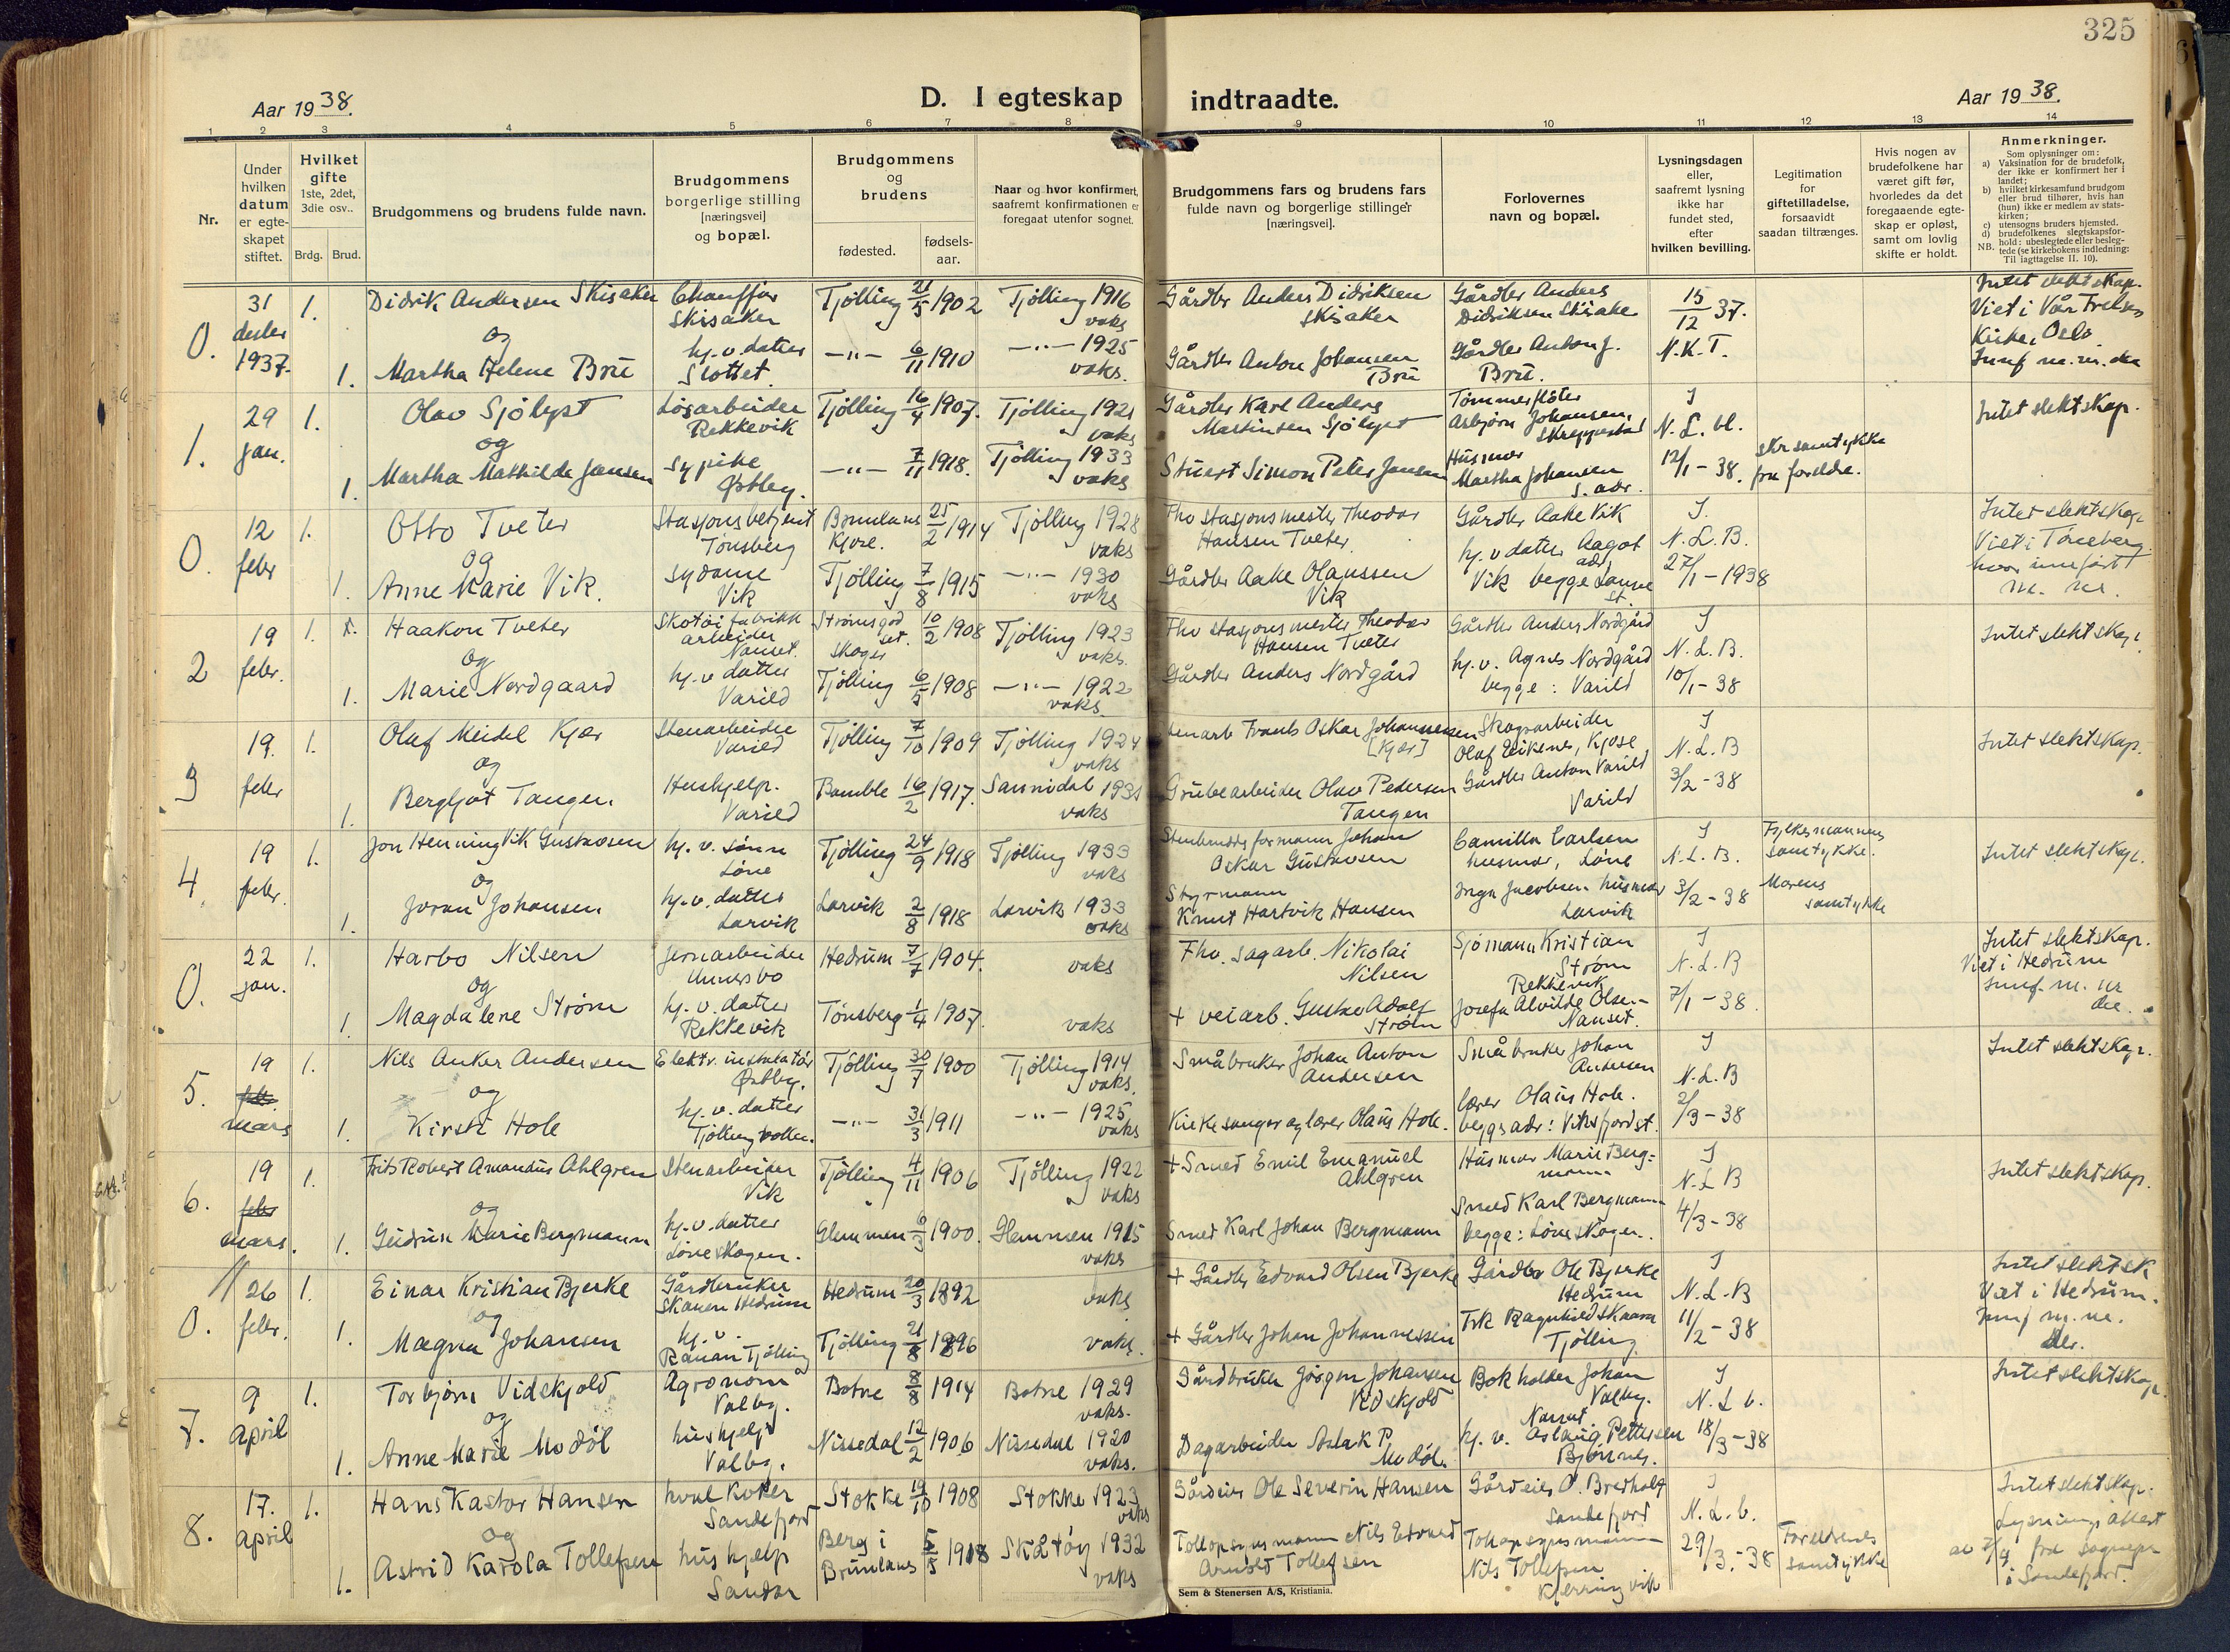 325
Aar 1938.
D. I egteskap indtraadte.
Aar 1938.
1 2 3 4 5 6 7 8 9 10 11 12 13 14
Nr.
Under hvilken datum er egte-skapet stiftet.
Hvilket gifte 1ste, 2det, 3die osv..
Brdg. Brud.
Brudgommens og brudens fulde navn.
Brudgommens borgerlige stilling [næringsvei] og bopæl.
Brudgommens og brudens
fødested.
fødsels-aar.
Naar og hvor konfirmert, saafremt konfirmationen er foregaat utenfor sognet.
Brudgommens fars og brudens fars fulde navn og borgerlige stillinger [næringsvei].
Forlovernes navn og bopæl.
Lysningsdagen eller, saafremt lysning ikke har fundet sted, efter hvilken bevilling.
Legitimation for giftetilladelse, forsaavidt saadan tiltrænges.
Hvis nogen av brudefolkene har været gift før, hvorledes da det foregaaende egte-skap er opløst, samt om lovlig skifte er holdt.
Anmerkninger.
Som oplysninger om:
a) Vaksination for de brudefolk, der ikke er konfirmert her i landet;
b) hvilket kirkesamfund brudgom eller brud tilhører, hvis han (hun) ikke er medlem av stats-kirken;
c) utensogns bruders hjemsted.
d) brudefolkenes slegtskapsfor-hold: ubeslegtede eller besleg-tede (se kirkebokens indledning:
NB. Til iagttagelse II. 10).
0. 31 desbr 1937. 1. Didrik Andersen Skisaker Chauffør Skisaker Tjølling 21/5 1902 Tjølling 1916 vaks Gårdbr Anders Didriksen Skisaker Gårdbr Anders Didriksen Skisaker 15/12 37. Intet slektskap. Viet i Vår Frelsers Kirke, Oslo
og
1. Martha Helene Bru hj.v. datter Slottet —"— 6/11 1910 —"— 1925 vaks. Gårdbr Anton Johansen Bru Gårdbr Anton J. Bru. N.K.T.
1. 29 jan. 1. Olav Sjølyst Løsarbeider Rekkevik Tjølling 16/4 1907. Tjølling 1921 vaks Gårdbr Karl Anders Martinsen Sjølyst Tømmerfløter Asbjørn Johansen, I N.L.bl. Intet slektskap.
og
1. Martha Mathilde Jansen sypike Østby. —"— 7/11 1918. Tjølling 1933 vaks Stuert Simon Peter Jansen Husmor Martha Johansen s. adr. 12/1-38. skr samtykke fra foreldre.
0. 12 febr 1. Otto Tveter Stasjonsbetjent Tønsberg Brunlanes Kjose. 25/2 1914 Tjølling 1928 vaks Fhv stasjonsmester Theodor Hansen Tveter. Gårdbr Aake Vik I. N.L.B. Intet slektskap. Viet i Tønsberg
og
1. Anne Marie Vik. sydame Vik Tjølling 7/8 1915 —"— 1930 vaks Gårdbr Aake Olaussen Vik hj.v datter Aagot Vik begge samme st. 27/1-1938
2 19 febr. 1. Haakon Tveter Skotøifabrikk arbeider Nanset. Strømsgodset. Skoger 10/2 1908 Tjølling 1923 vaks. Fhv stasjonsmester Theodor Hansen Tveter Gårdbr Anders Nordgård I N.L.B. Intet slektskap.
og
1. Marie Nordgaard hj.v datter Varild Tjølling 6/5 1908 —"— 1922 vaks. Gårdbr Anders Nordgård hj.v. Agnes Nordgård begge: Varild 10/1-38
3 19 febr 1. Olaf Meidel Kjær Stenarbeider Varild Tjølling 7/10 1909 Tjølling 1924 vaks Stenarb Frants Oskar Johannessen [Kjær] Skogsarbeider Olaf Eikenes, Kjose I N.L.B Intet slektskap.
og
1. Bergljot Tangen. Hushjelp. Varild Bamble 16/2 1917. Sannidal 1931 vaks Grubearbeider Olav Pedersen Tangen Gårdbr Anton Varild Varild 3/2-38
4 19 febr. 1. Jon Henning Vik Gustavsen hj.v. sønn Løve Tjølling 24/9 1918 Tjølling 1933 vaks Stenbruddsformann Johan Oskar Gustavsen Camilla Carlsen husmor, Løve I N.L.B. Fylkesmannens samtykke. Intet slektskap.
og
1. Joran Johansen hj.v. datter Larvik Larvik 2/8 1918 Larvik 1933 vaks Styrmann Knut Hartvik Hansen Inga Jacobsen husmor Larvik 3/2-38 Morens samtykke
0. 22 jan. 1. Harbo Nilsen Jernarbeider Hedrum 7/7 1904. vaks Fhv. sagarb. Nikolai Nilsen Sjømann Kristian Strøm Rekkevik I N.L.B Intet slektskap. Viet i Hedrum
og
1. Magdalene Strøm hj.v. datter Rekkevik Tønsberg 1/4 1907. vaks + veiarb. Gustav Adolf Strøm Josefa Alvilde Olsen Nanset. 7/1-38.
5. 19 febr. mars 1. Nils Anker Andersen Elektr. installatør Østby. Tjølling 30/7 1900 Tjølling 1914 vaks. Småbruker Johan Anton Andersen Småbruker Johan Andersen I N.L.B Intet slektskap.
og
1. Kirsti Hole hj.v. datter Tjøllingvollen. —"— 31/3 1911 —"— 1925 vaks Kirkesanger og lærer Olaus Hole. lærer Olaus Hole. begge adr: Viksfjord st. 2/3-38
6. 19 febr mars. 1. Frits Robert Amandus Ahlgren Stenarbeider Vik Tjølling 4/11 1906 Tjølling 1922 vaks + Smed Emil Emanuel Ahlgren Husmor Marie Bergmann I N.L.B Intet slektskap.
og
1. Gudrun Marie Bergmann hj.v. datter Løveskogen. Glemmen 6/3 1900. Glemmen 1915 vaks Smed Karl Johan Bergmann Smed Karl Bergmann begge: Løveskogen. 4/3-38
0. 26 febr. 1. Einar Kristian Bjerke Gårdbruker Skauen Hedrum Hedrum 20/3 1892 vaks + Gårdbr Edvard Olsen Bjerke Gårdbr Ole Bjerke Hedrum I N.L.B Intet slektsk Viet i Hedrum.
og
1. Magna Johansen hj.v. Rauan Tjølling Tjølling 21/8 1896 vaks. + Gårdbr Johan Johannessen Frk Ragnhild Skaara Tjølling 11/2-38
7. 9 april 1. Torbjørn Vidskjold Agronom Valby. Botne 8/8 1914 Botne 1929 vaks. Gårdbruker Jørgen Johansen Vidskjold Bokholder Johan Valby. Nanset I N.L.b. Intet slektskap.
og
1. Anne Marie Modøl hushjelp Valby. Nissedal 12/2 1906 Nissedal 1920 vaks. Dagarbeider Aslak P. Modøl. hj.v. Aslaug Pettersen Bjønnes. 18/3-38
8. 17. april 1. Hans Kastor Hansen hvalkoker Sandefjord Stokke 19/10 1908 Stokke 1923 vaks Gårdeier Ole Severin Hansen Gårdeier O. Bredholt Sandefjord I N.L.b. Intet slektskap. Lysningsattest av 7/4 fra sognepr i Sandefjord.
og
1. Astrid Karola Tollefsen hushjelp Sandar Berg i Brunlanes 5/5 1918 Skåtøy 1932 vaks Tollopsynsmann Nils Edvard Arnold Tollefsen Tollopsynsmann Nils Tollefsen Kjerringvik 29/3.-38 Foreldrenes samtykke
Sem & Stenersen A/S, Kristiania.